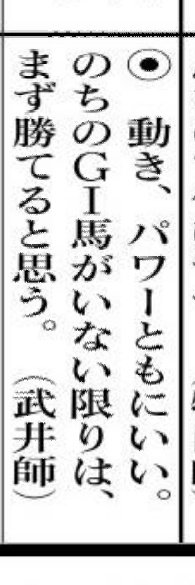 ◉ 動き、パワーともにいい。
のちのGⅠ馬がいない限りは、
まず勝てると思う。（武井師）